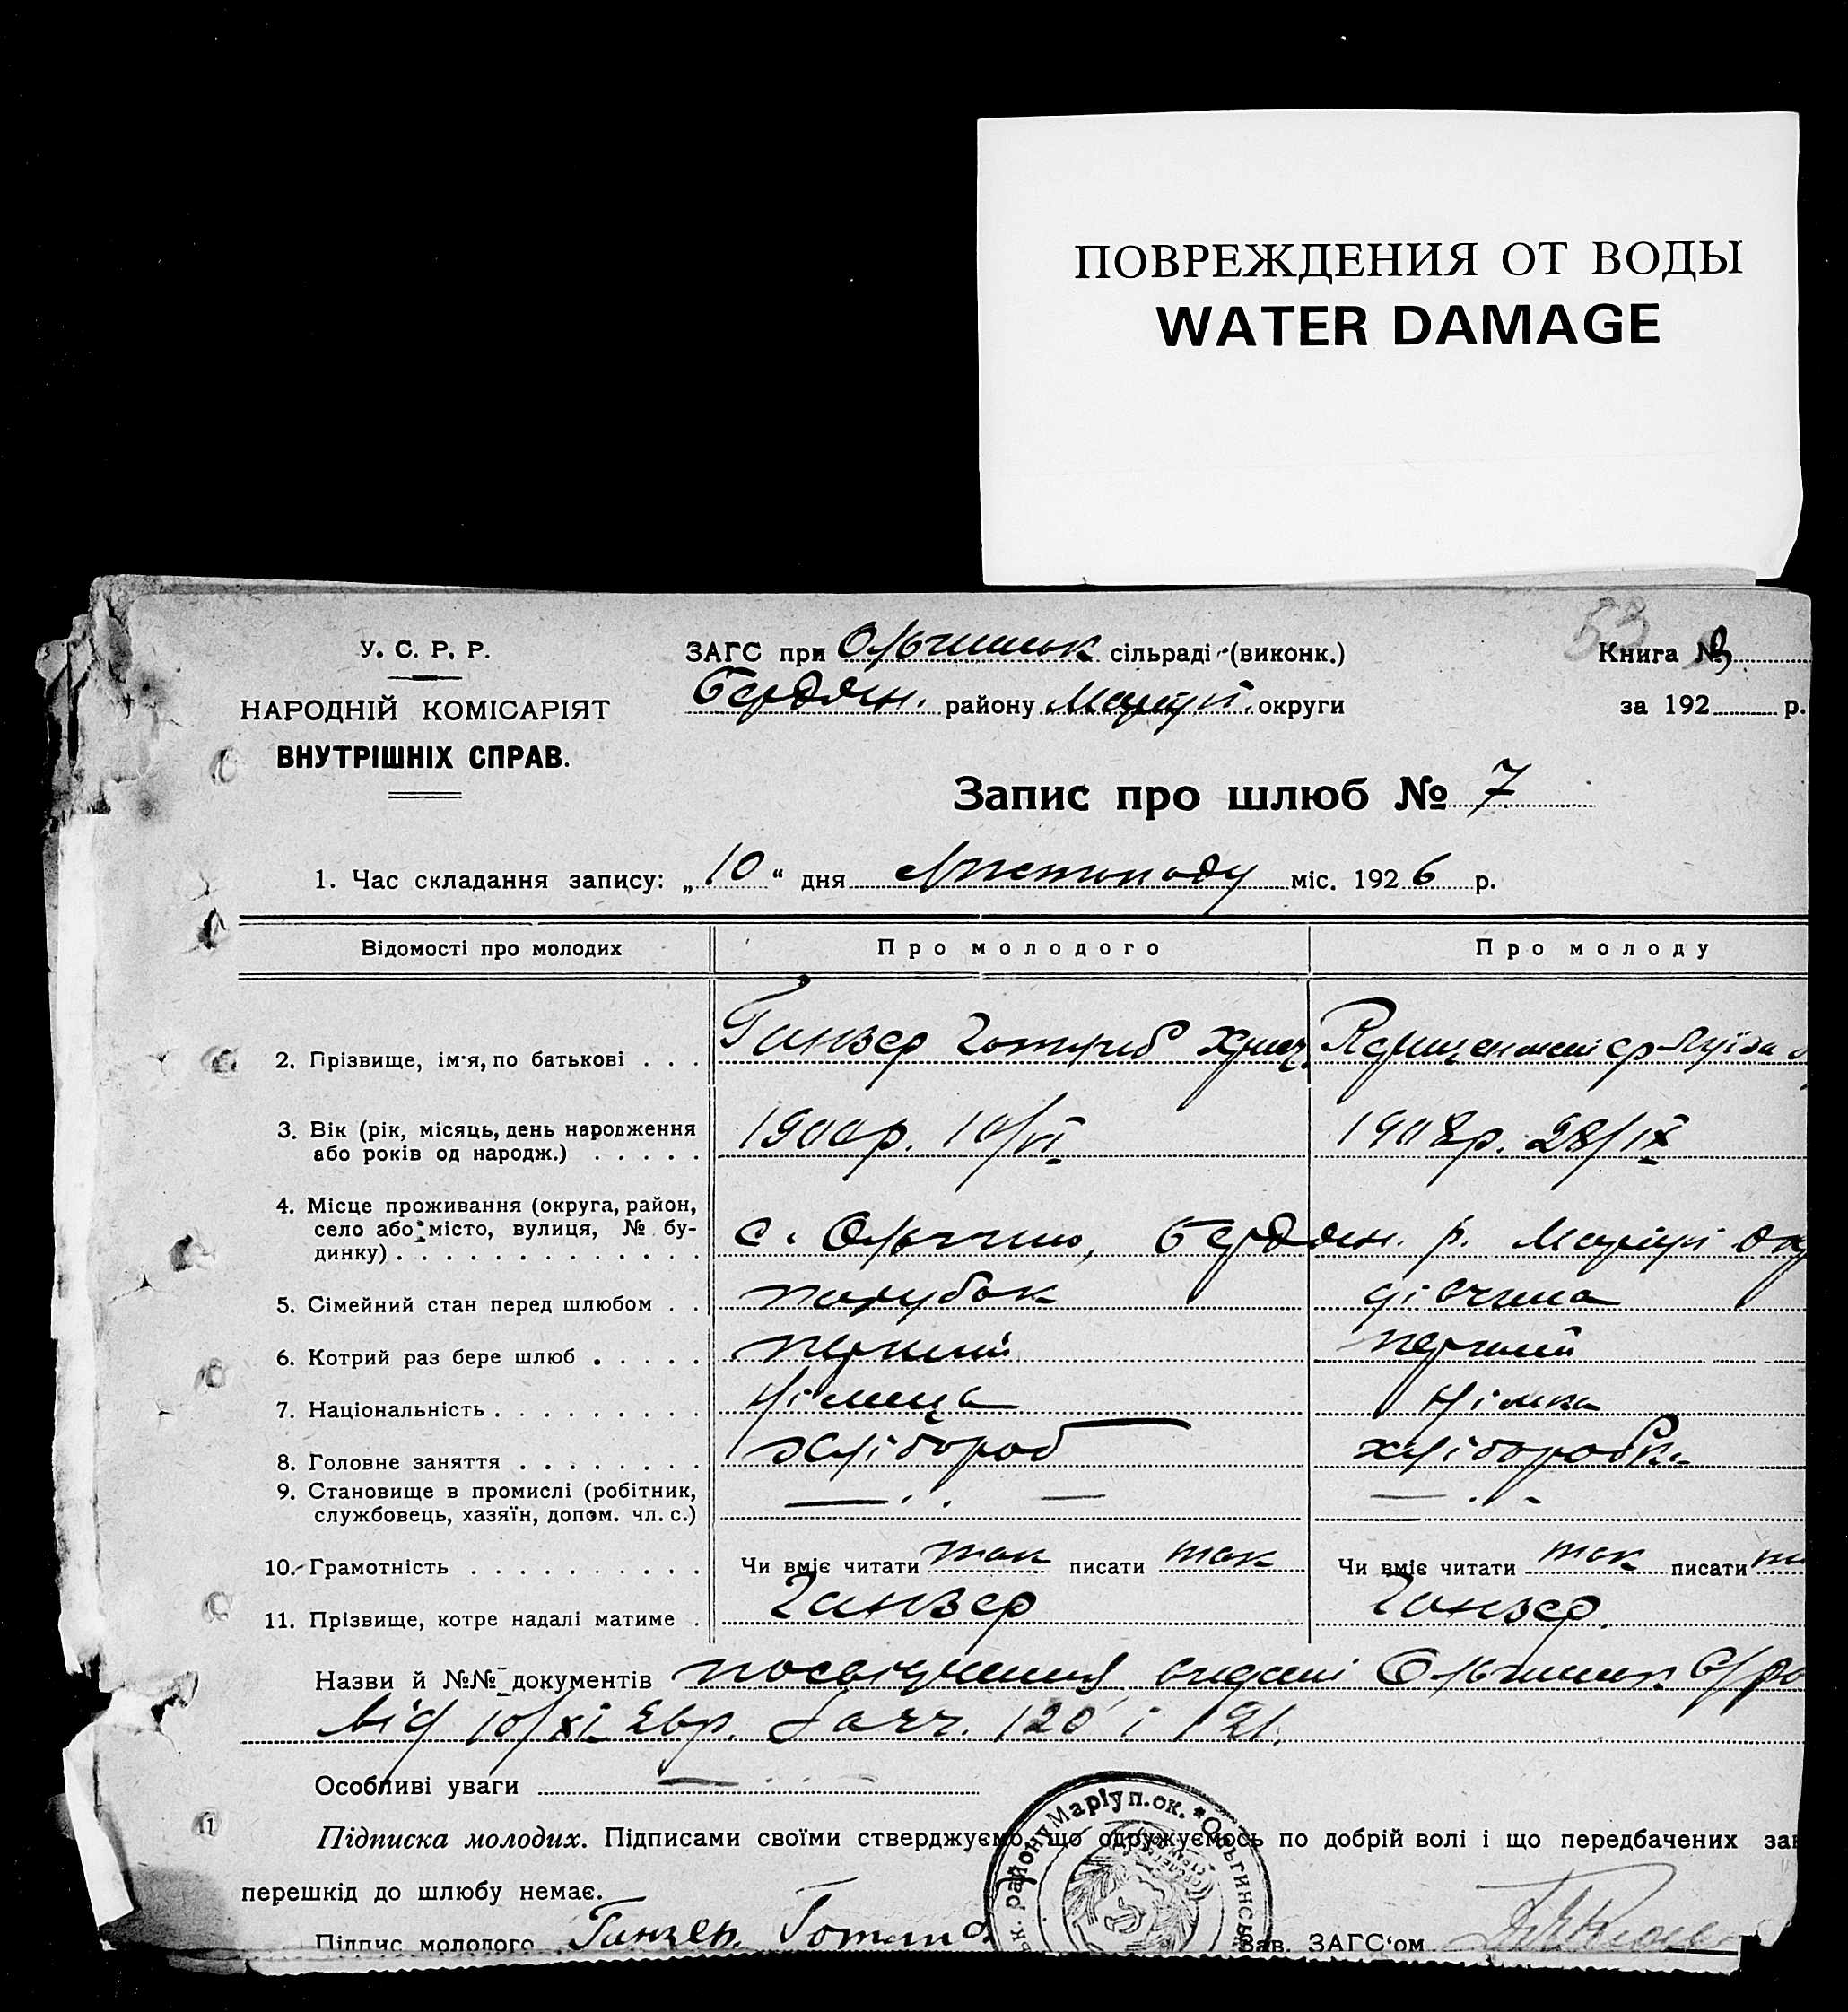 ПОВРЕЖДЕНИЯ ОТ ВОДЫ
WATER DAMAGE
53
У. С. Р. Р.
НАРОДНІЙ КОМІСАРІЯТ
ВНУТРІШНІХ СПРАВ.
ЗАГС при Ольгинськ сільраді (виконк.)
Бердян. району Маріуп. округи
Книга № 3
за 192 р.
Запис про шлюб № 7
1. Час складання запису: „10“ дня Листопаду міс. 1926 р.
Відомості про молодих Про молодого Про молоду
2. Прізвище, ім'я, по батькові . . . Ганзер Готліб Луїза
3. Вік (рік, місяць, день народження
або років од народж.) . . . . . 1900р. 10/VI 1908р. 28/IX
4. Місце проживання (округа, район,
село або місто, вулиця, № бу-
динку) . . . . . . . . . . . . . с. Ольгино, Бердян. р. Маріуп. ок
5. Сімейний стан перед шлюбом . . парубок дівчина
6. Котрий раз бере шлюб . . . . . перший перший
7. Національність . . . . . . . . . німець німка
8. Головне заняття . . . . . . . . хлібороб хліборобка
9. Становище в промислі (робітник,
службовець, хазяїн, допом. чл. с.)
10. Грамотність . . . . . . . . . . Чи вміє читати так писати так Чи вміє читати так писати
11. Прізвище, котре надалі матиме . Ганзер Ганзер
Назви й №№ документів посвідчення видані Ольгинськ. с/р
від 10/XI 26р. за чч. 120 і 121.
Особливі уваги
Підписка молодих. Підписами своїми стверджуємо, що одружуємось по добрій волі і що передбачених зак
перешкід до шлюбу немає.
району Маріуп. ок. * Ольгинськ
Підпис молодого Ганзер Готліб
Зав. ЗАГС'ом